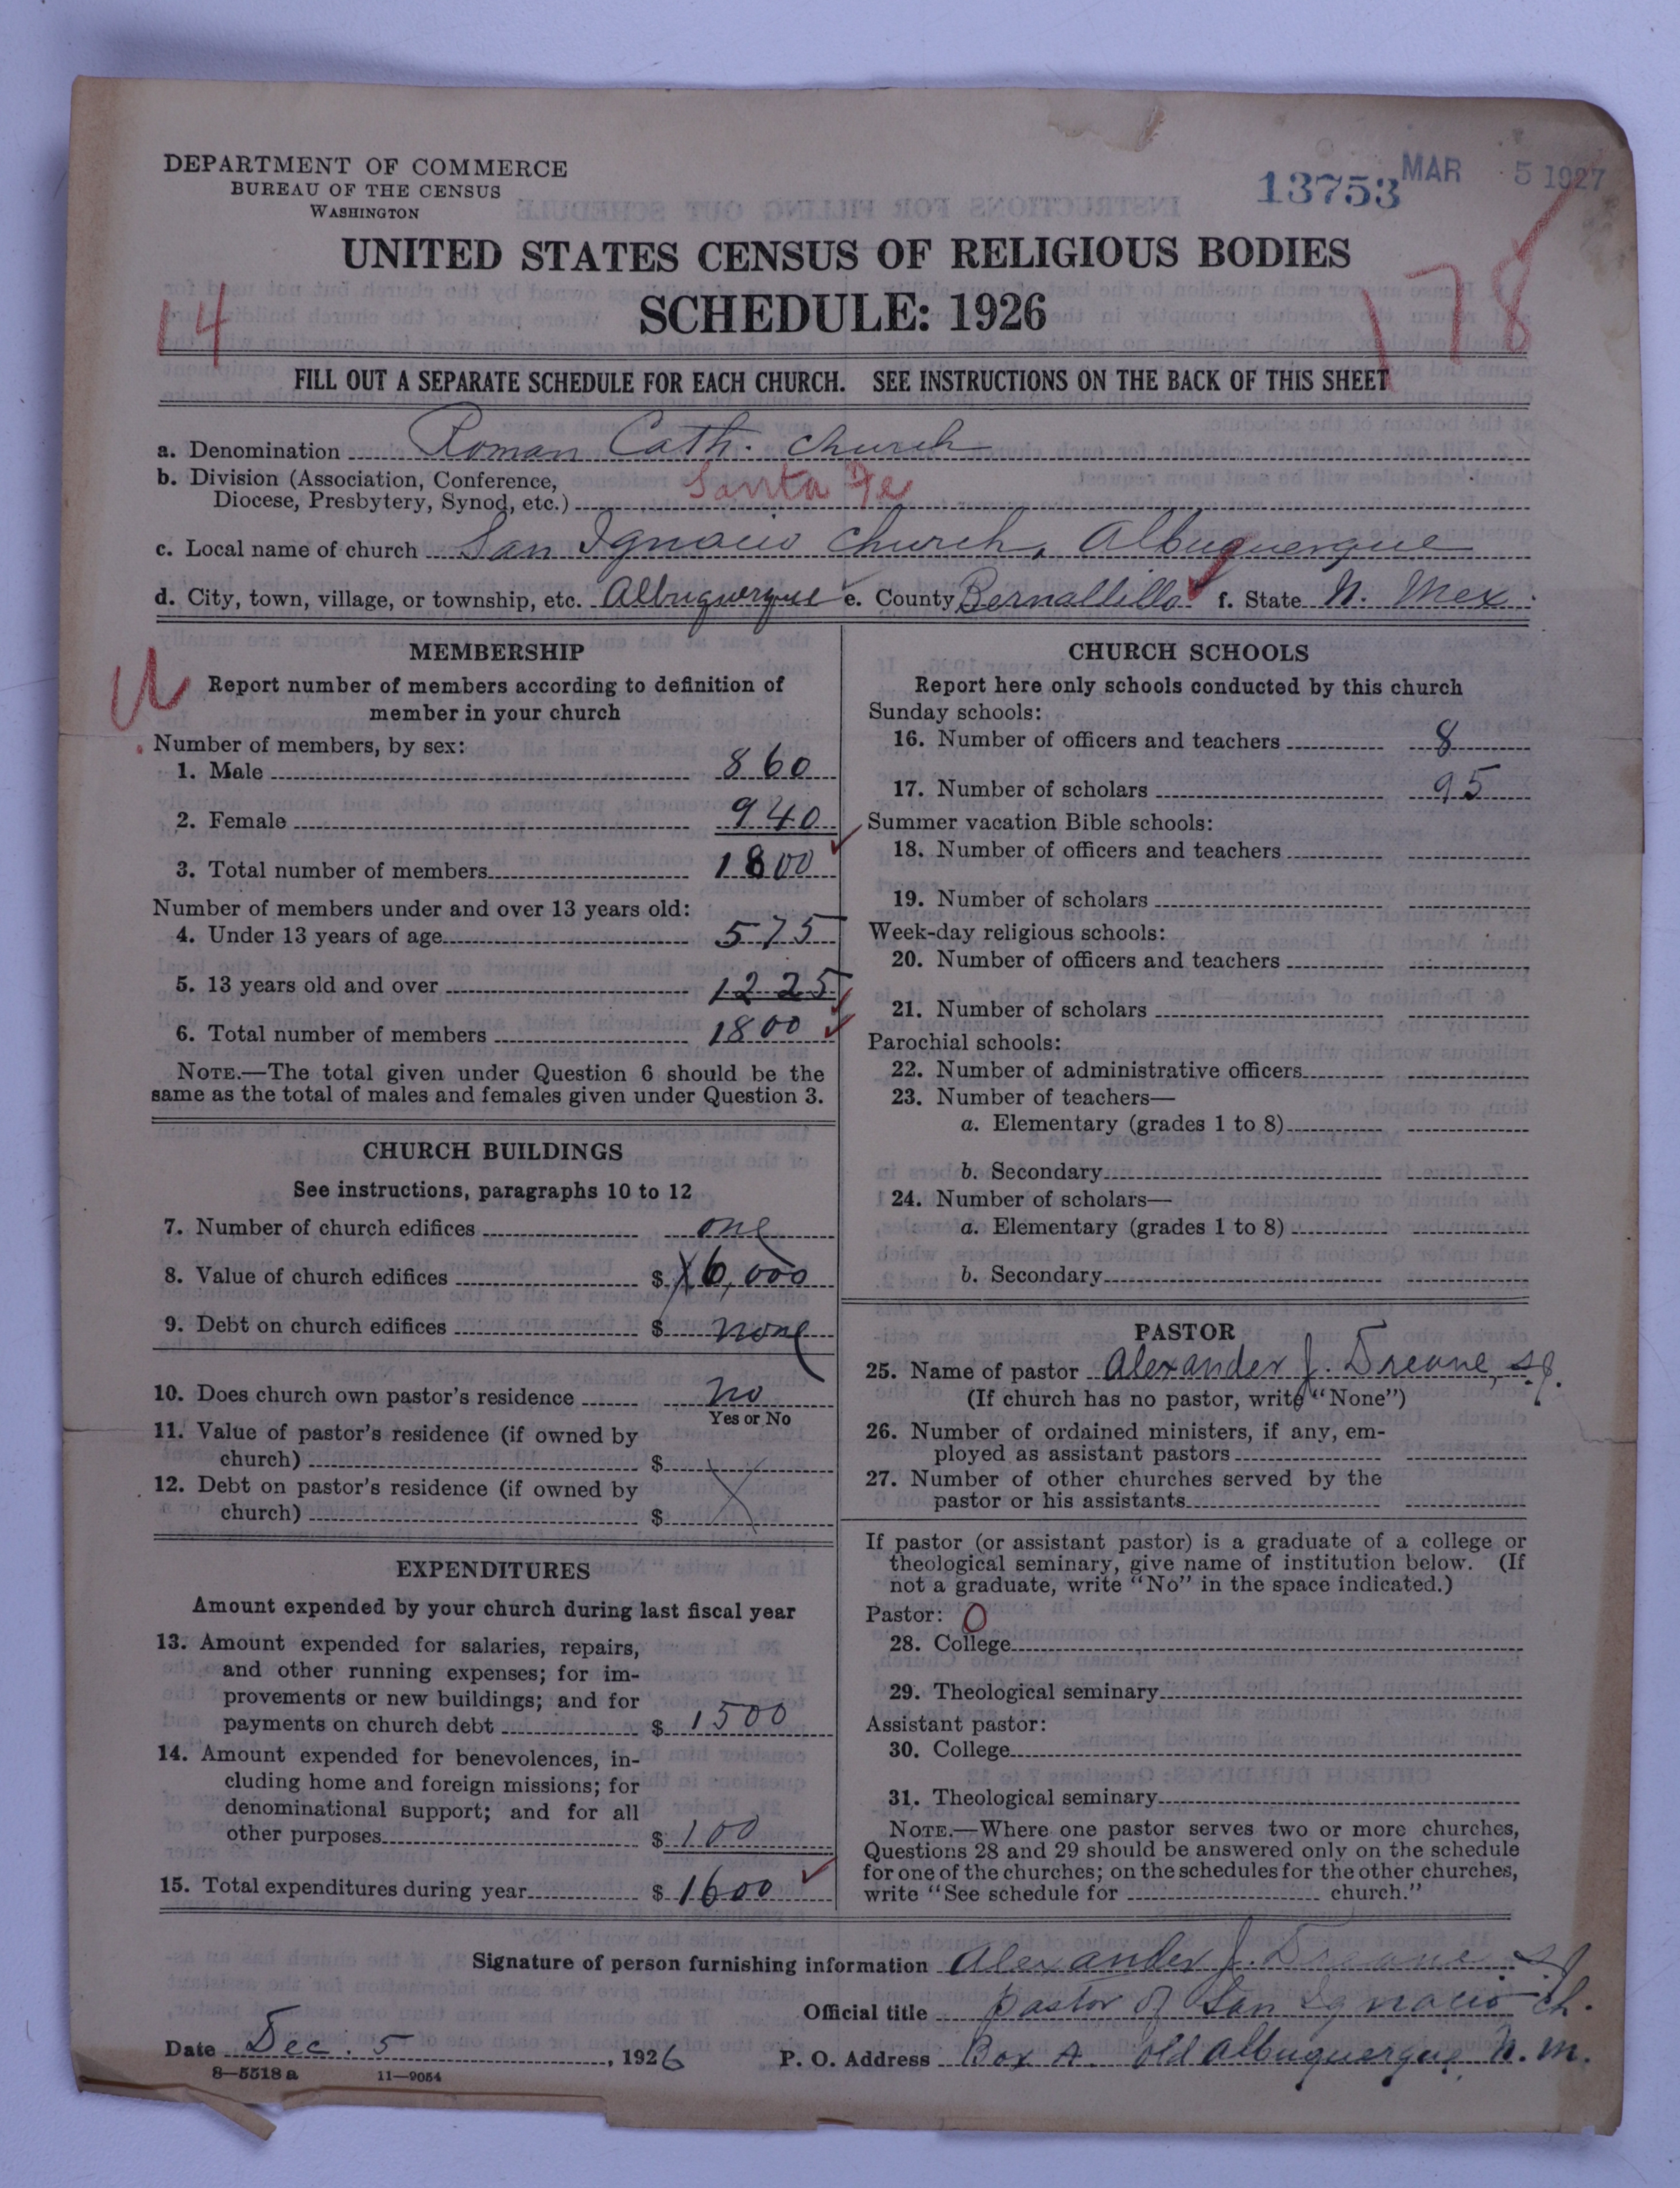 DEPARTMENT OF COMMERCE
BUREAU OF THE CENSUS
WASHINGTON
13753
MAR 5 1927
UNITED STATES CENSUS OF RELIGIOUS BODIES
SCHEDULE: 1926
14
178
FILL OUT A SEPARATE SCHEDULE FOR EACH CHURCH. SEE INSTRUCTIONS ON THE BACK OF THIS SHEET
a. Denomination Roman Cath. Church
b. Division (Association, Conference,
Diocese, Presbytery, Synod, etc.) Santa Fe
c. Local name of church San Ignacio Church, Albuquerque
d. City, town, village, or township, etc. Albuquerque e. County Bernallillo f. State N. Mex.
U
MEMBERSHIP
Report number of members according to definition of
member in your church
Number of members, by sex:
1. Male 860
2. Female 940
3. Total number of members 1800
Number of members under and over 13 years old:
4. Under 13 years of age 575
5. 13 years old and over 1225
6. Total number of members 1800
NOTE.—The total given under Question 6 should be the
same as the total of males and females given under Question 3.
CHURCH BUILDINGS
See instructions, paragraphs 10 to 12
7. Number of church edifices one
8. Value of church edifices $ 6,000
9. Debt on church edifices $ none
10. Does church own pastor's residence no
Yes or No
11. Value of pastor's residence (if owned by
church) $
12. Debt on pastor's residence (if owned by
church) $
EXPENDITURES
Amount expended by your church during last fiscal year
13. Amount expended for salaries, repairs,
and other running expenses; for im-
provements or new buildings; and for
payments on church debt $ 1500
14. Amount expended for benevolences, in-
cluding home and foreign missions; for
denominational support; and for all
other purposes $ 100
15. Total expenditures during year $ 1600
CHURCH SCHOOLS
Report here only schools conducted by this church
Sunday schools:
16. Number of officers and teachers 8
17. Number of scholars 95
Summer vacation Bible schools:
18. Number of officers and teachers
19. Number of scholars
Week-day religious schools:
20. Number of officers and teachers
21. Number of scholars
Parochial schools:
22. Number of administrative officers
23. Number of teachers—
a. Elementary (grades 1 to 8)
b. Secondary
24. Number of scholars—
a. Elementary (grades 1 to 8)
b. Secondary
PASTOR
25. Name of pastor Alexander J. Dreane, S.J.
(If church has no pastor, write "None")
26. Number of ordained ministers, if any, em-
ployed as assistant pastors
27. Number of other churches served by the
pastor or his assistants
If pastor (or assistant pastor) is a graduate of a college or
theological seminary, give name of institution below. (If
not a graduate, write "No" in the space indicated.)
Pastor: O
28. College
29. Theological seminary
Assistant pastor:
30. College
31. Theological seminary
NOTE.—Where one pastor serves two or more churches,
Questions 28 and 29 should be answered only on the schedule
for one of the churches; on the schedules for the other churches,
write "See schedule for church."
Signature of person furnishing information Alexander J. Dreane S.J.
Official title pastor of San Ignacio Ch.
Date Dec. 5, 1926 P. O. Address Box A. Old Albuquerque, N. M.
8—5518 a 11—9054